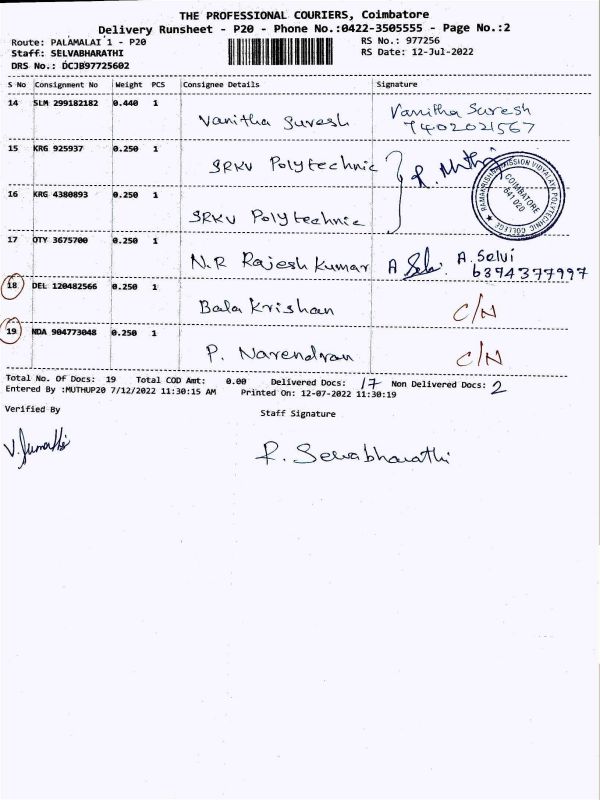 THE PROFESSIONAL COURIERS, Coimbatore
Delivery Runsheet - P20 - Phone No.:0422-3505555 - Page No.:2
Route: PALAMALAI 1 - P20 RS No.: 977256
Staff: SELVABHARATHI RS Date: 12-Jul-2022
DRS No.: DCJB97725602
S No Consignment No Weight PCS Consignee Details Signature
14 SLM 299182182 0.440 1 Vanitha Suresh Vanitha Suresh
7402021567
15 KRG 925937 0.250 1 SRKV Polytechnic
RAMAKRISHNA MISSION VIDYALAYA POLYTECHNIC COLLEGE
COIMBATORE
641 020
16 KRG 4380893 0.250 1 SRKV Polytechnic
17 OTY 3675700 0.250 1 N.R Rajesh Kumar A. Selvi
6374377997
18 DEL 120482566 0.250 1 Bala Krishan C/N
19 NDA 904773048 0.250 1 P. Narendran C/N
Total No. Of Docs: 19 Total COD Amt: 0.00 Delivered Docs: 17 Non Delivered Docs: 2
Entered By :MUTHUP20 7/12/2022 11:30:15 AM Printed On: 12-07-2022 11:30:19
Verified By Staff Signature
R. Selvabharathi